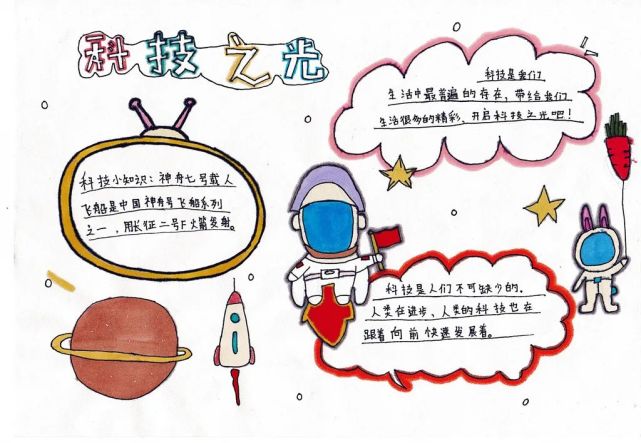 科技之光
科技是我们
生活中最普遍的存在，带给我们
生活很多的精彩，开启科技之光吧！
科技小知识：神舟七号载人
飞船是中国神舟号飞船系列
之一，用长征二号F火箭发射。
科技是人们不可缺少的，
人类在进步、人类的科技也在
跟着向前快速发展着。